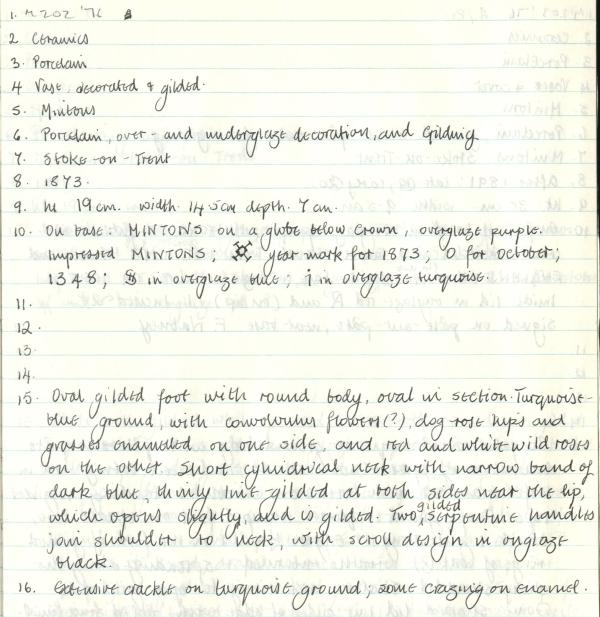 1. M202 '76
2 Ceramics
3. Porcelain
4 Vase, decorated & gilded.
5. Mintons
6. Porcelain, over- and underglaze decoration, and gilding
7. Stoke-on-Trent
8. 1873.
9. ht 19 cm. width 14.5cm depth. 7 cm.
10. On base: MINTONS on a globe below crown, overglaze purple.
Impressed MINTONS; year mark for 1873; O for October;
1348; 8 in overglaze blue; i in overglaze turquoise.
11.
12.
13.
14.
15. Oval gilded foot with round body, oval in section. Turquoise-
blue ground, with convolvulus flowers(?), dog-rose hips and
grasses enamelled on one side, and red and white wild roses
on the other. Short cylindrical neck with narrow band of
dark blue, thinly line-gilded at both sides near the lip,
which opens slightly, and is gilded. Two gilded serpentine handles
join shoulder to neck, with scroll design in onglaze
black.
16. Extensive crackle on turquoise ground; some crazing on enamel.